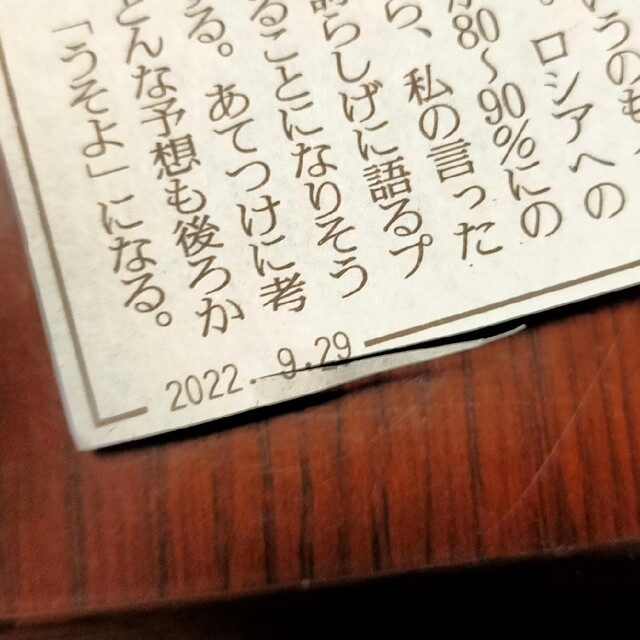 うのも
。ロシアへの
80〜90%にの
ら、私の言った
らしげに語るプ
ることになりそう
る。あてつけに考
どんな予想も後ろか
「うそよ」になる。
2022. 9.29